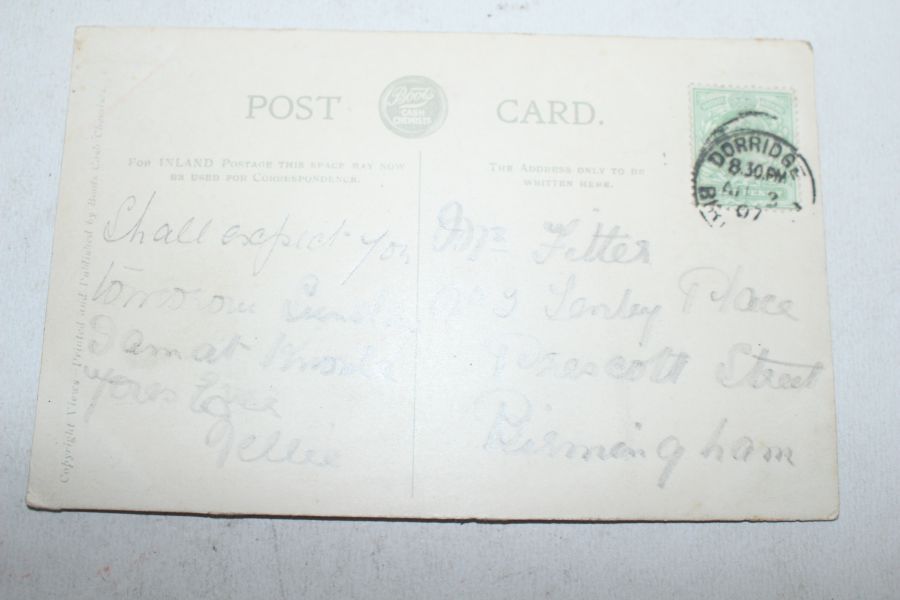 POST CARD.
Boots
CASH
CHEMISTS
FOR INLAND POSTAGE THIS SPACE MAY NOW
BE USED FOR CORRESPONDENCE.
THE ADDRESS ONLY TO BE
WRITTEN HERE.
DORRIDGE
8.30 PM
07
Copyright Views Printed and Published by Boots Cash Chemists
Shall expect you
tomorow
I am at
yores
Nellie
Mr Fitter
Place
Prescott Street
Birmingham